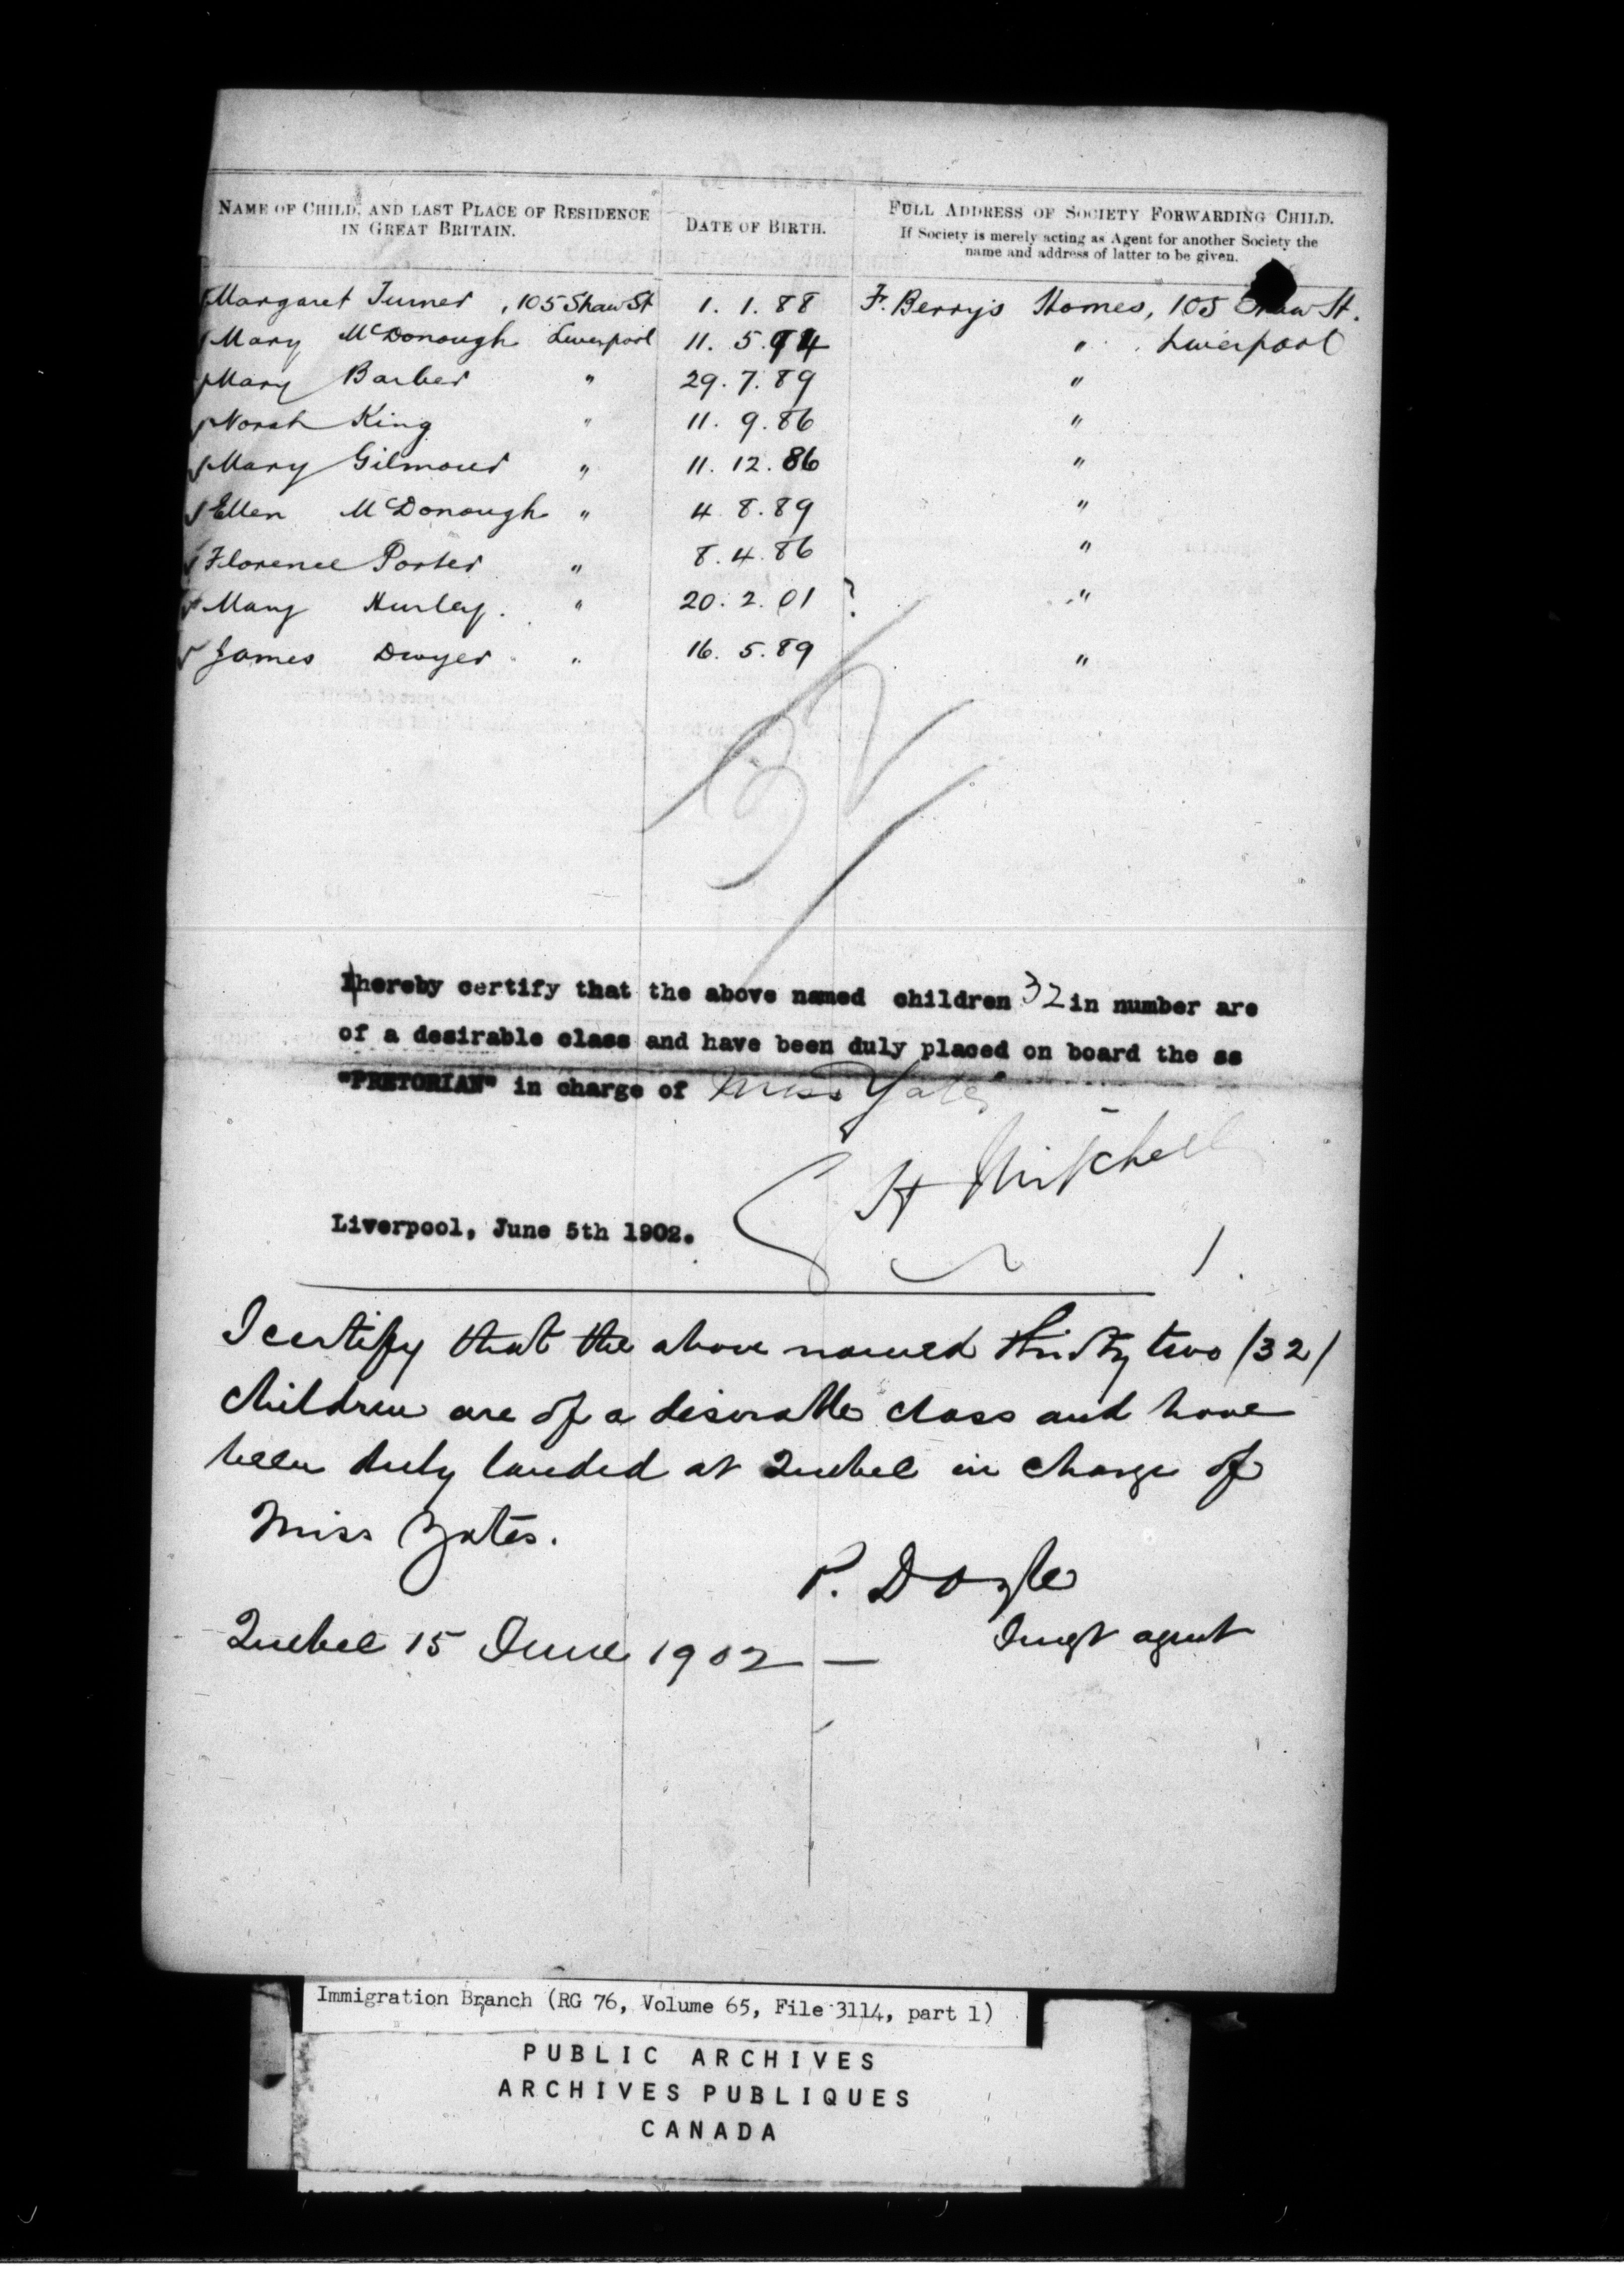 NAME OF CHILD, AND LAST PLACE OF RESIDENCE
IN GREAT BRITAIN.
DATE OF BIRTH.
FULL ADDRESS OF SOCIETY FORWARDING CHILD.
If Society is merely acting as Agent for another Society the
name and address of latter to be given.
Margaret Turner , 105 Shaw St 1. 1. 88 Fr. Berry's Homes, 105 Shaw St.
Mary McDonough Liverpool 11. 5. 94 " Liverpool
Mary Barber " 29. 7. 89 "
Norah King " 11. 9. 86 "
Mary Gilmour " 11. 12. 86 "
Ellen McDonough " 4 8. 89 "
Florence Porter " 8. 4. 86 "
Mary Hurley. " 20. 2. 01 ? "
James Dwyer " 16. 5. 89 "
32
I hereby certify that the above named children 32 in number are
of a desirable class and have been duly placed on board the ss
"PRETORIAN" in charge of Miss Yates
H Mitchell
Liverpool, June 5th 1902.
I certify that the above named thirty two /32/
children are of a desirable class and have
been duly landed at Quebec in charge of
Miss Yates.
P. Doyle
Immgt agent
Quebec 15 June 1902 —
Immigration Branch (RG 76, Volume 65, File 3114, part 1)
PUBLIC ARCHIVES
ARCHIVES PUBLIQUES
CANADA